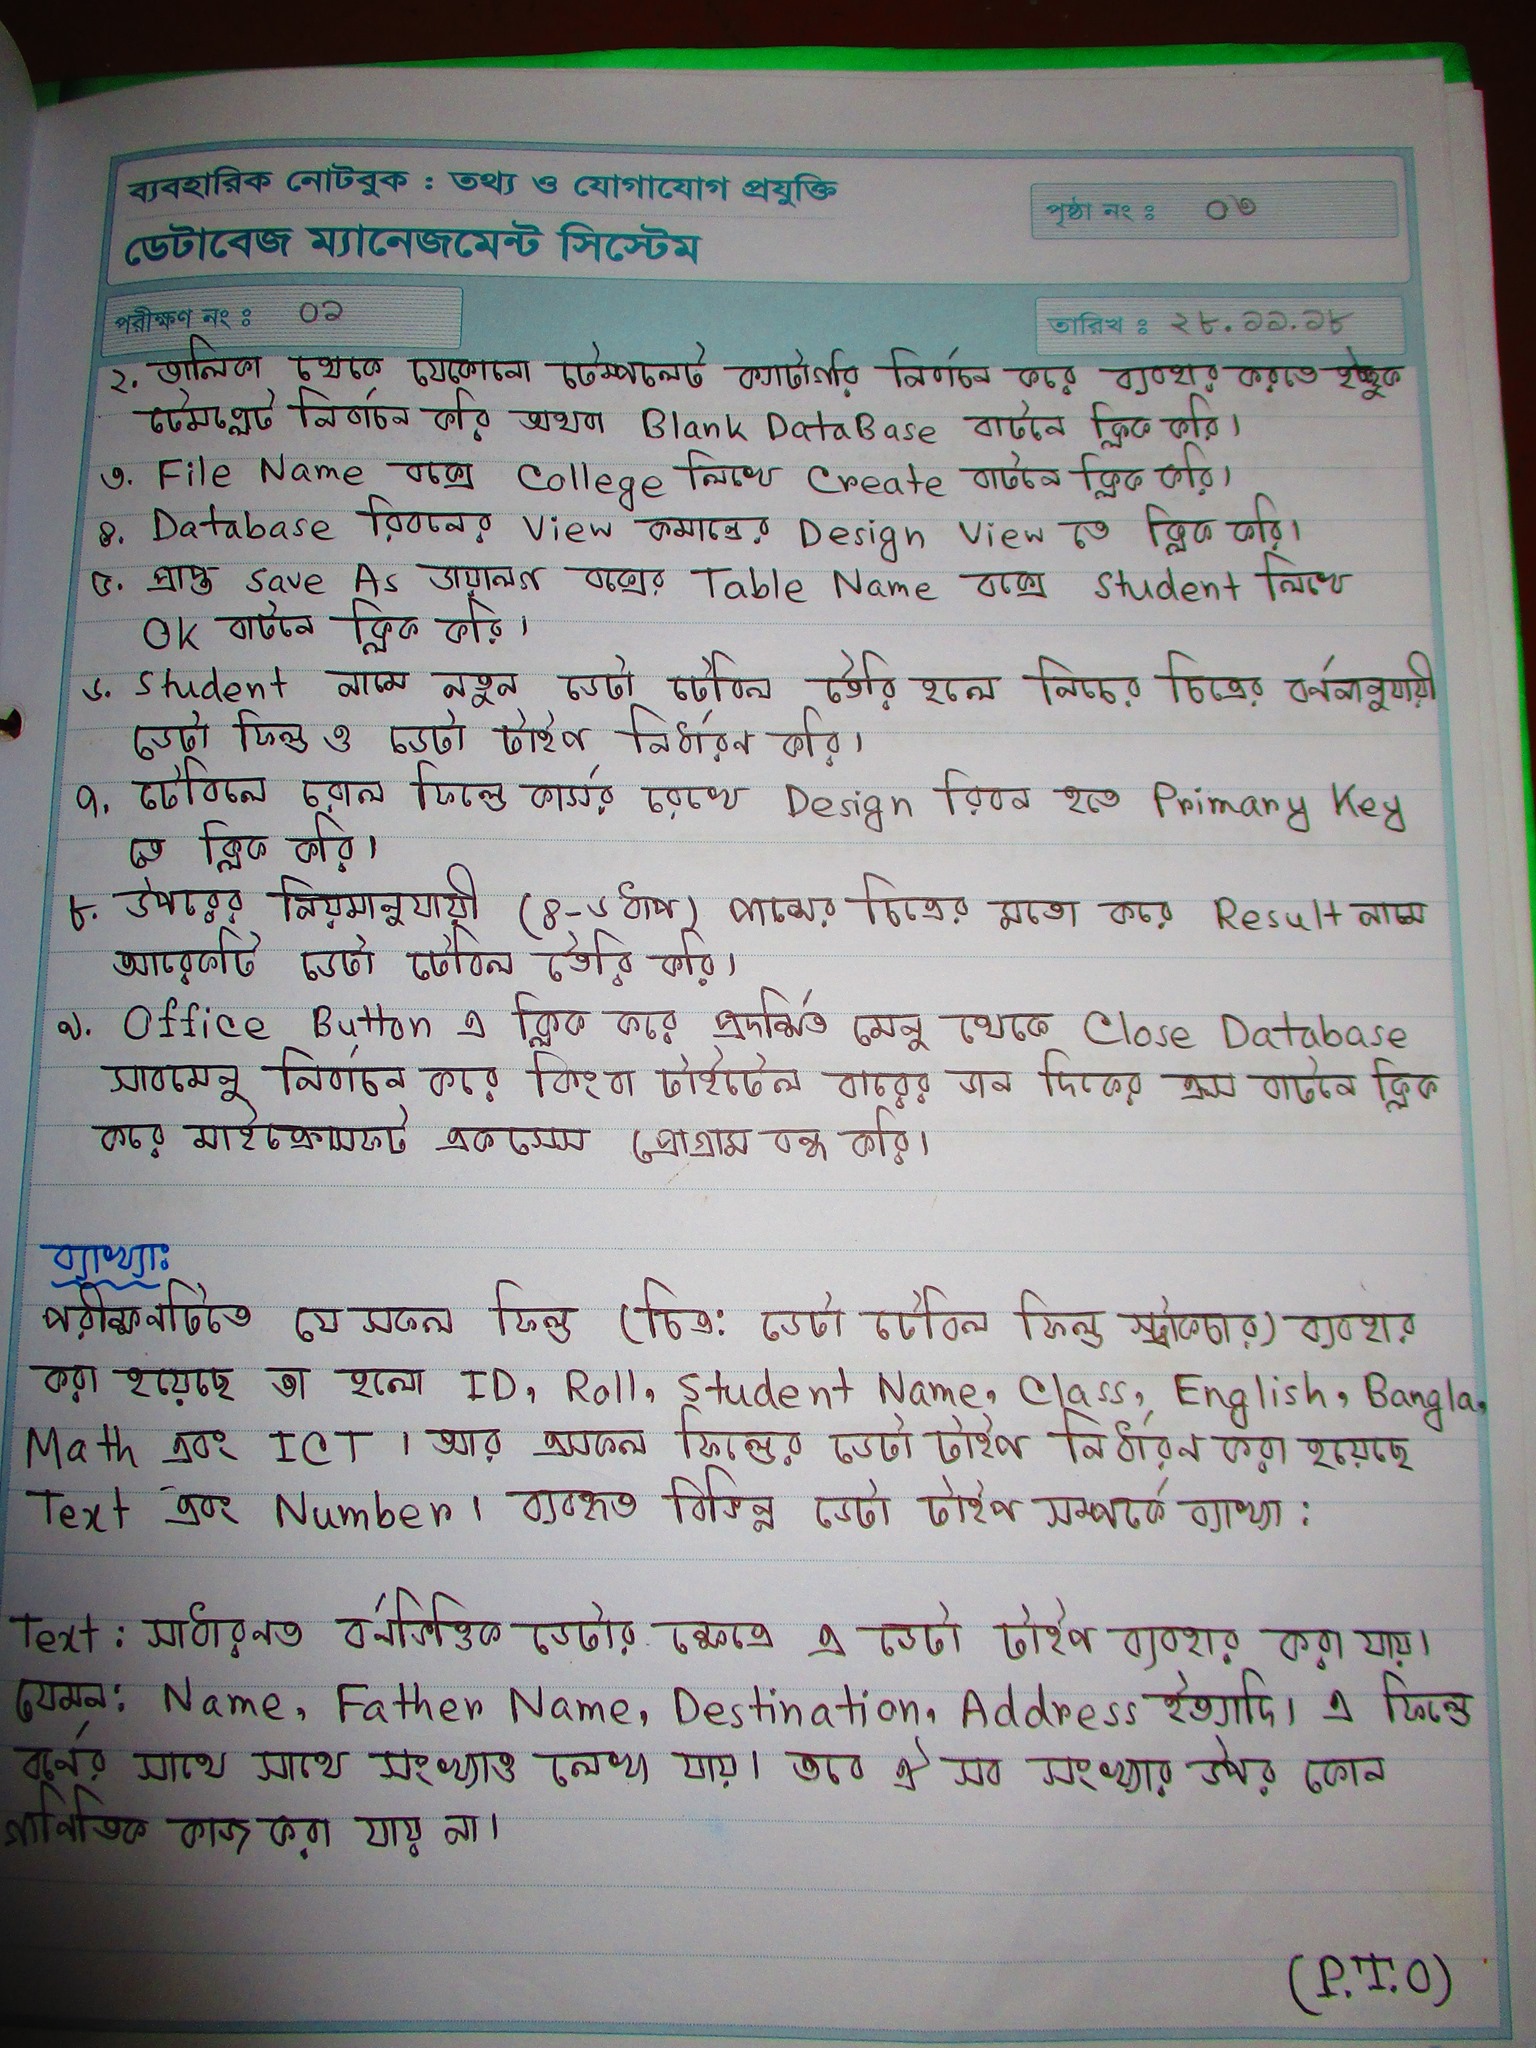 ব্যবহারিক নোটবুক : তথ্য ও যোগাযোগ প্রযুক্তি
পৃষ্ঠা নং : ০৩
ডেটাবেজ ম্যানেজমেন্ট সিস্টেম
পরীক্ষণ নং : ০২
তারিখ : ২৮.১১.১৮
২. তালিকা থেকে যেকোনো টেম্পলেট ক্যাটাগরি নির্বাচন করে ব্যবহার করতে ইচ্ছুক
টেমপ্লেট নির্বাচন করি অথবা Blank DataBase বাটনে ক্লিক করি।
৩. File Name বক্সে College লিখে Create বাটনে ক্লিক করি।
৪. Database রিবনের View কমান্ডের Design View তে ক্লিক করি।
৫. প্রাপ্ত Save As ডায়ালগ বক্সের Table Name বক্সে Student লিখে
OK বাটনে ক্লিক করি।
৬. Student নামে নতুন ডেটা টেবিল তৈরি হলে নিচের চিত্রের বর্ননানুযায়ী
ডেটা ফিল্ড ও ডেটা টাইপ নির্ধারন করি।
৭. টেবিলে রোল ফিল্ডে কার্সর রেখে Design রিবন হতে Primary Key
তে ক্লিক করি।
৮. উপরের নিয়মানুযায়ী (৪-৬ ধাপ) পাশের চিত্রের মতো করে Result নামে
আরেকটি ডেটা টেবিল তৈরি করি।
৯. Office Button এ ক্লিক করে প্রদর্শিত মেনু থেকে Close Database
সাবমেনু নির্বাচন করে কিংবা টাইটেল বারের ডান দিকের ক্রস বাটনে ক্লিক
করে মাইক্রোসফট একসেস প্রোগ্রাম বন্ধ করি।
ব্যাখ্যাঃ
পরীক্ষনটিতে যে সকল ফিল্ড (চিত্র: ডেটা টেবিল ফিল্ড স্ট্রাকচার) ব্যবহার
করা হয়েছে তা হলো ID, Roll, Student Name, Class, English, Bangla,
Math এবং ICT । আর এসকল ফিল্ডের ডেটা টাইপ নির্ধারন করা হয়েছে
Text এবং Number। ব্যবহৃত বিভিন্ন ডেটা টাইপ সম্পর্কে ব্যাখ্যা :
Text : সাধারনত বর্নভিত্তিক ডেটার ক্ষেত্রে এ ডেটা টাইপ ব্যবহার করা যায়।
যেমন: Name, Father Name, Destination, Address ইত্যাদি। এ ফিল্ডে
বর্নের সাথে সাথে সংখ্যাও লেখা যায়। তবে ঐ সব সংখ্যার উপর কোন
গানিতিক কাজ করা যায় না।
(P.T.O)